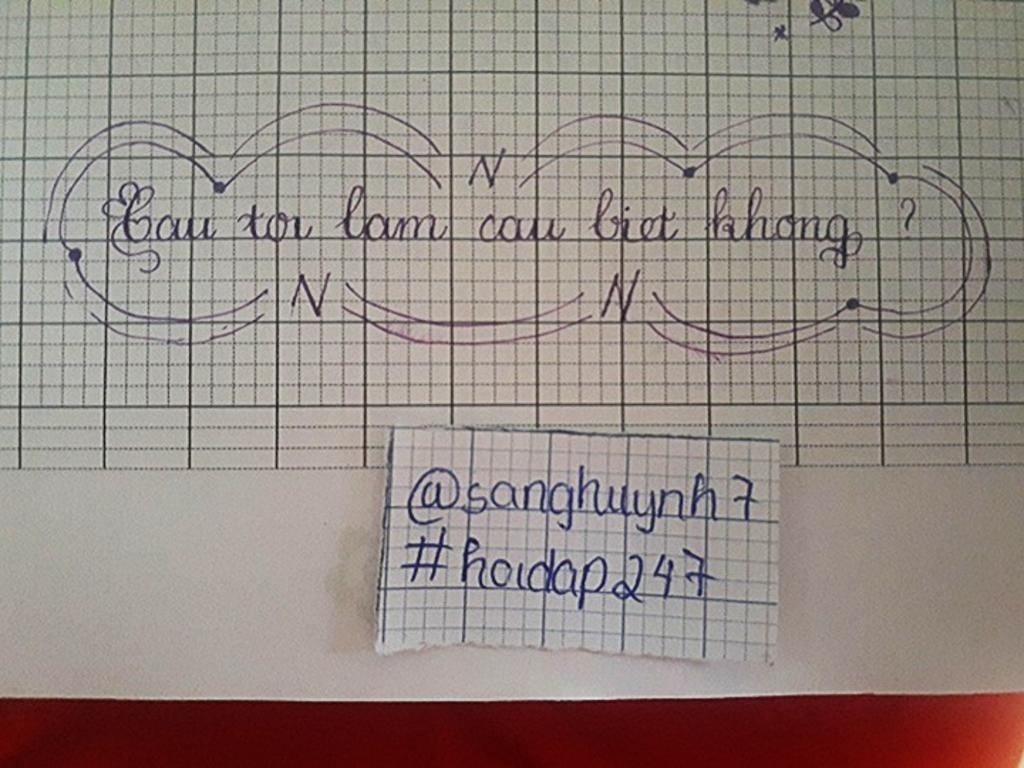 N
Cau toi lam cau biet khong ?
N N
@sanghuynh7
#hoidap247